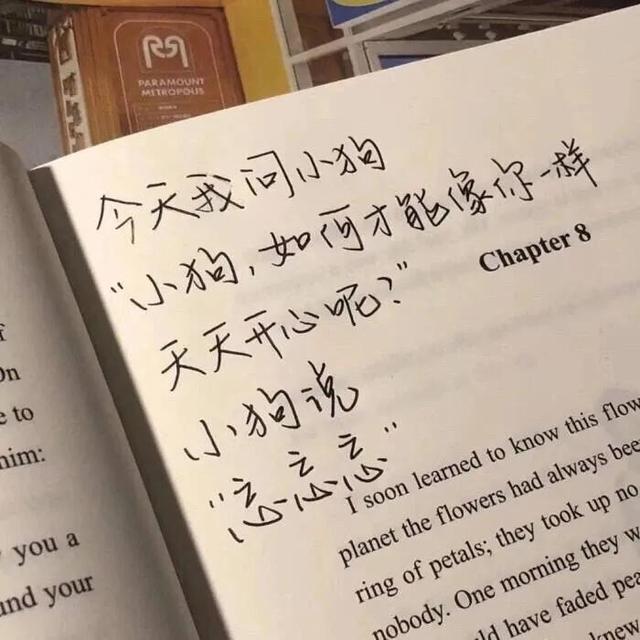 PARAMOUNT
METROPOLIS
今天我问小狗
“小狗,如何才能像你一样
天天开心呢?”
小狗说
“忘忘忘”
Chapter 8
I soon learned to know this flow
planet the flowers had always bee
ring of petals; they took up no
nobody. One morning they w
ld have faded pea
knew
On
e to
him:
you a
and your